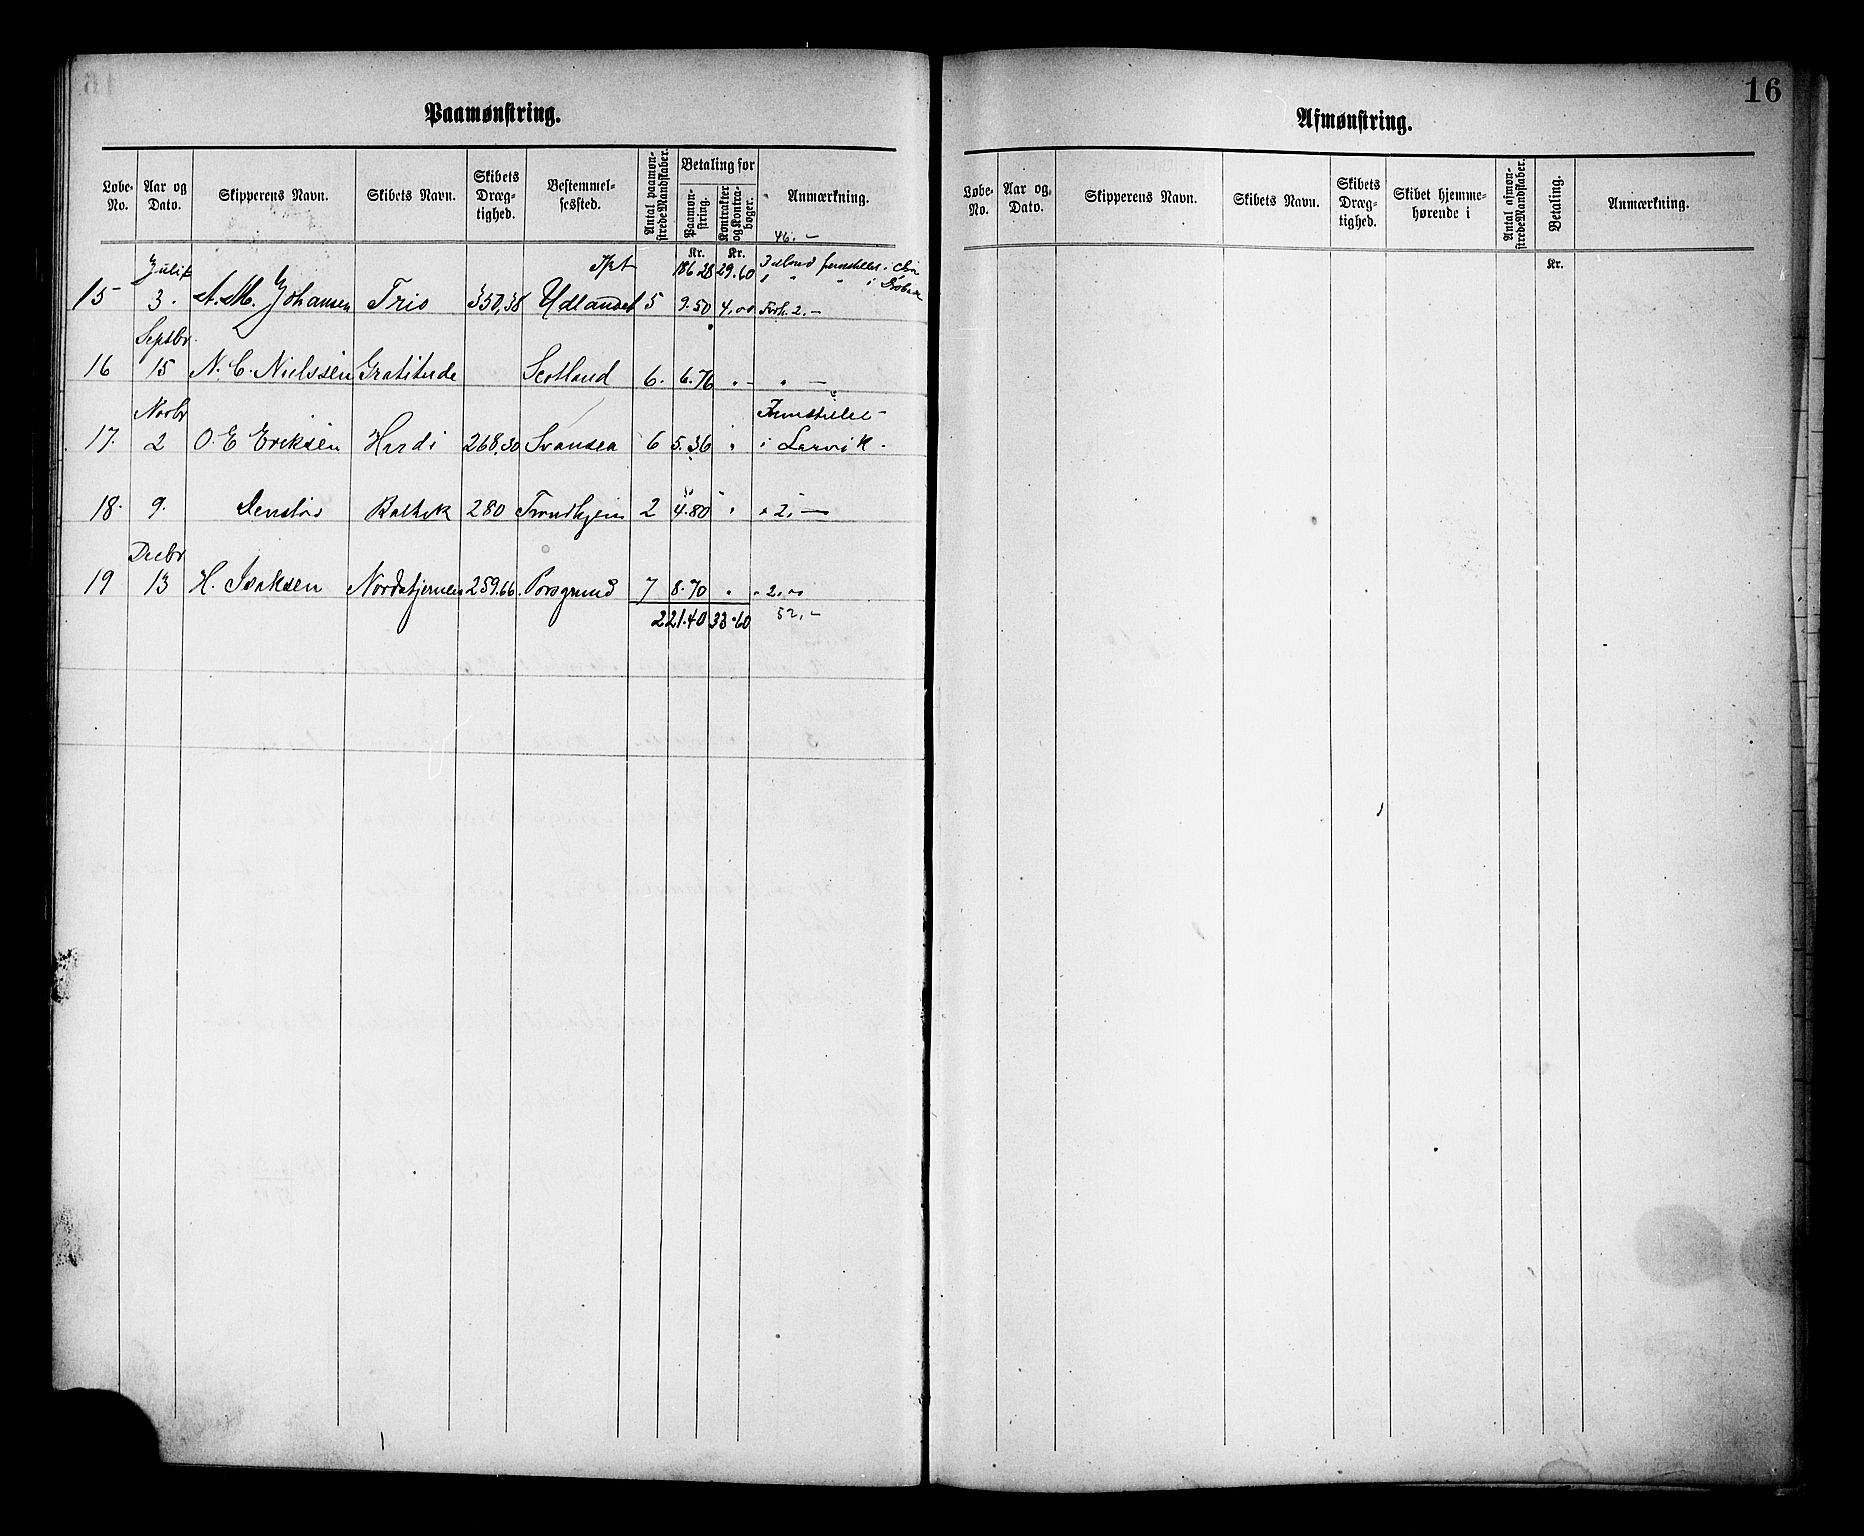 16
Paamønstring.
Løbe-No. Aar og Dato. Skipperens Navn. Skibets Navn. Skibets Dræg-tighed. Bestemmel-sessted. Antal paamøn-strede Mandskaber. Betaling for Paamøn-string. Kontrakter og Kontra-bøger. Anmærkning.
46.-
Kr. Kr.
Juli 186 28 29.60 3 Mand i
15 3. A. M. Johansen Trio 350,38 Udlandet 5 9.50 4,00 Forh. 2,-
Septbr.
16 15 N. C. Nielssen Gratitude Scotland 6. 6.76 " - " -
Novbr
17. 2 O. E Eriksen Hardi 268,30 Svansea 6 5.36 " i Larvik.
18. 9. 280 Trondhjem 2 4.80 " " 2,-
Decbr
19 13 H. Isaksen Nordstjernen 259.66. Porsgrund 7 8.70 " " 2,00
221.40 33.60 52,-
Afmønstring.
16
Løbe-No. Aar og Dato. Skipperens Navn. Skibets Navn. Skibets Dræg-tighed. Skibet hjemme-hørende i Antal afmøn-strede Mandskaber. Betaling. Anmærkning.
Kr.